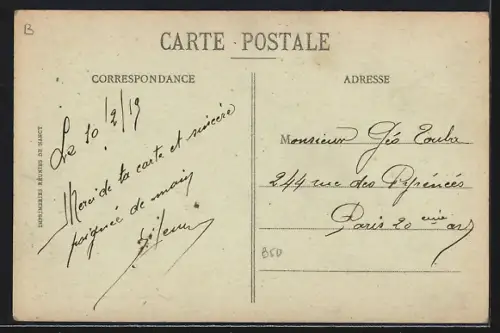 B
CARTE POSTALE
CORRESPONDANCE
ADRESSE
IMPRIMERIES RÉUNIES DE NANCY
Le 10/2/19
Merci de ta carte et sincère
poignée de main
Monsieur Géo
244 rue des Pyrénées
Paris 20 eme ar